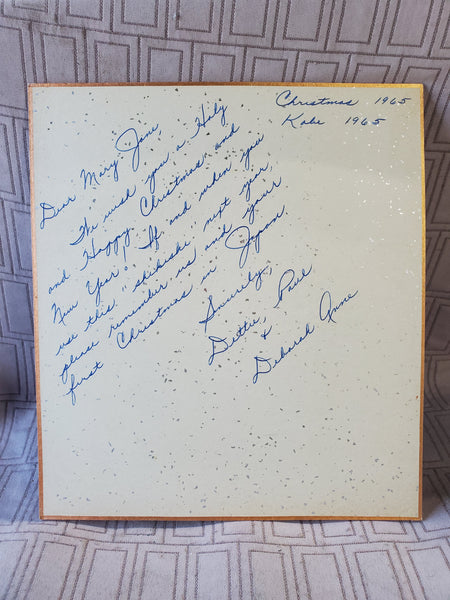 Christmas 1965
Kobe 1965
Dear Mary Jane,
We wish you a Holy
and Happy Christmas and
New Year! If and when you
use this "shikishi" next year,
please remember us and your
first Christmas in Japan.
Sincerely,
Dottie, Paul
&
Deborah Anne